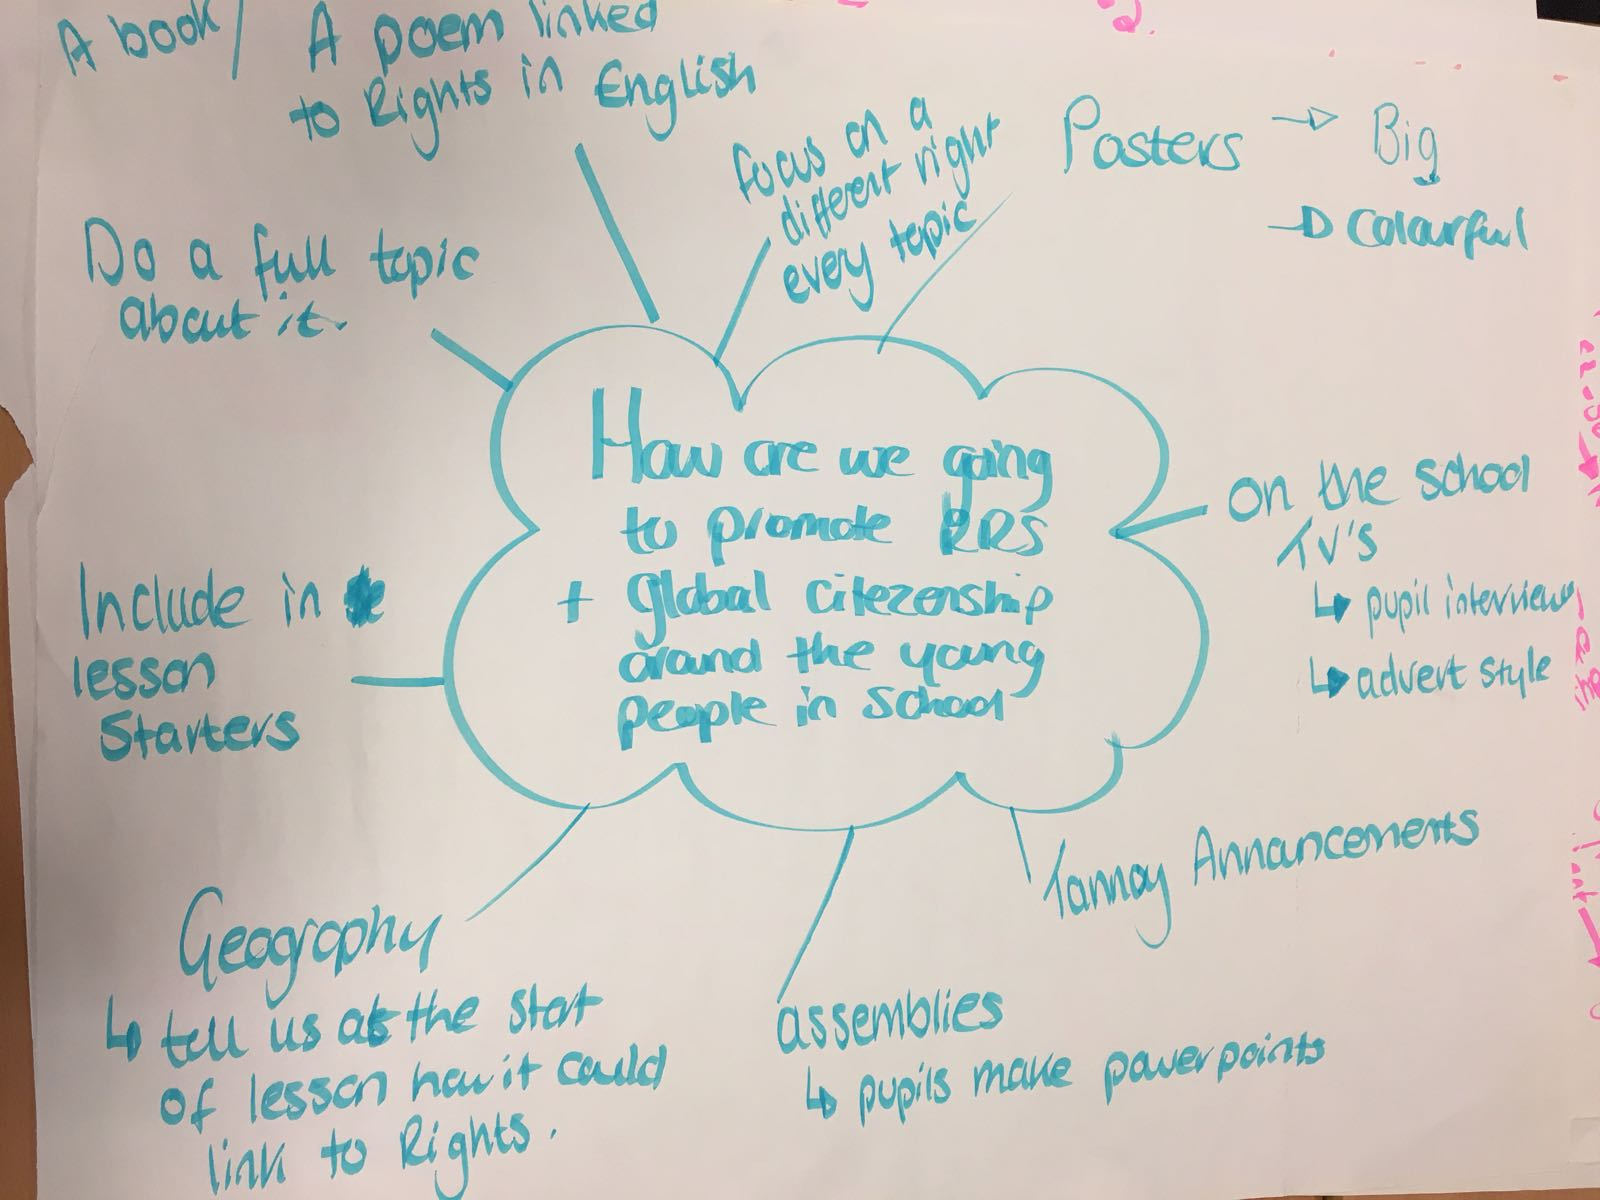 A book / A poem linked
to Rights in English
Focus on a
different right
every topic
Posters → Big
→ Colourful
Do a full topic
about it.
How are we going
to promote RRS
+ global citezenship
around the young
people in school
on the school
TV's
↳ pupil interview
↳ advert style
Include in
lesson
Starters
Tannoy Announcements
Geography
↳ tell us at the start
of lesson how it could
link to Rights.
assemblies
↳ pupils make powerpoints